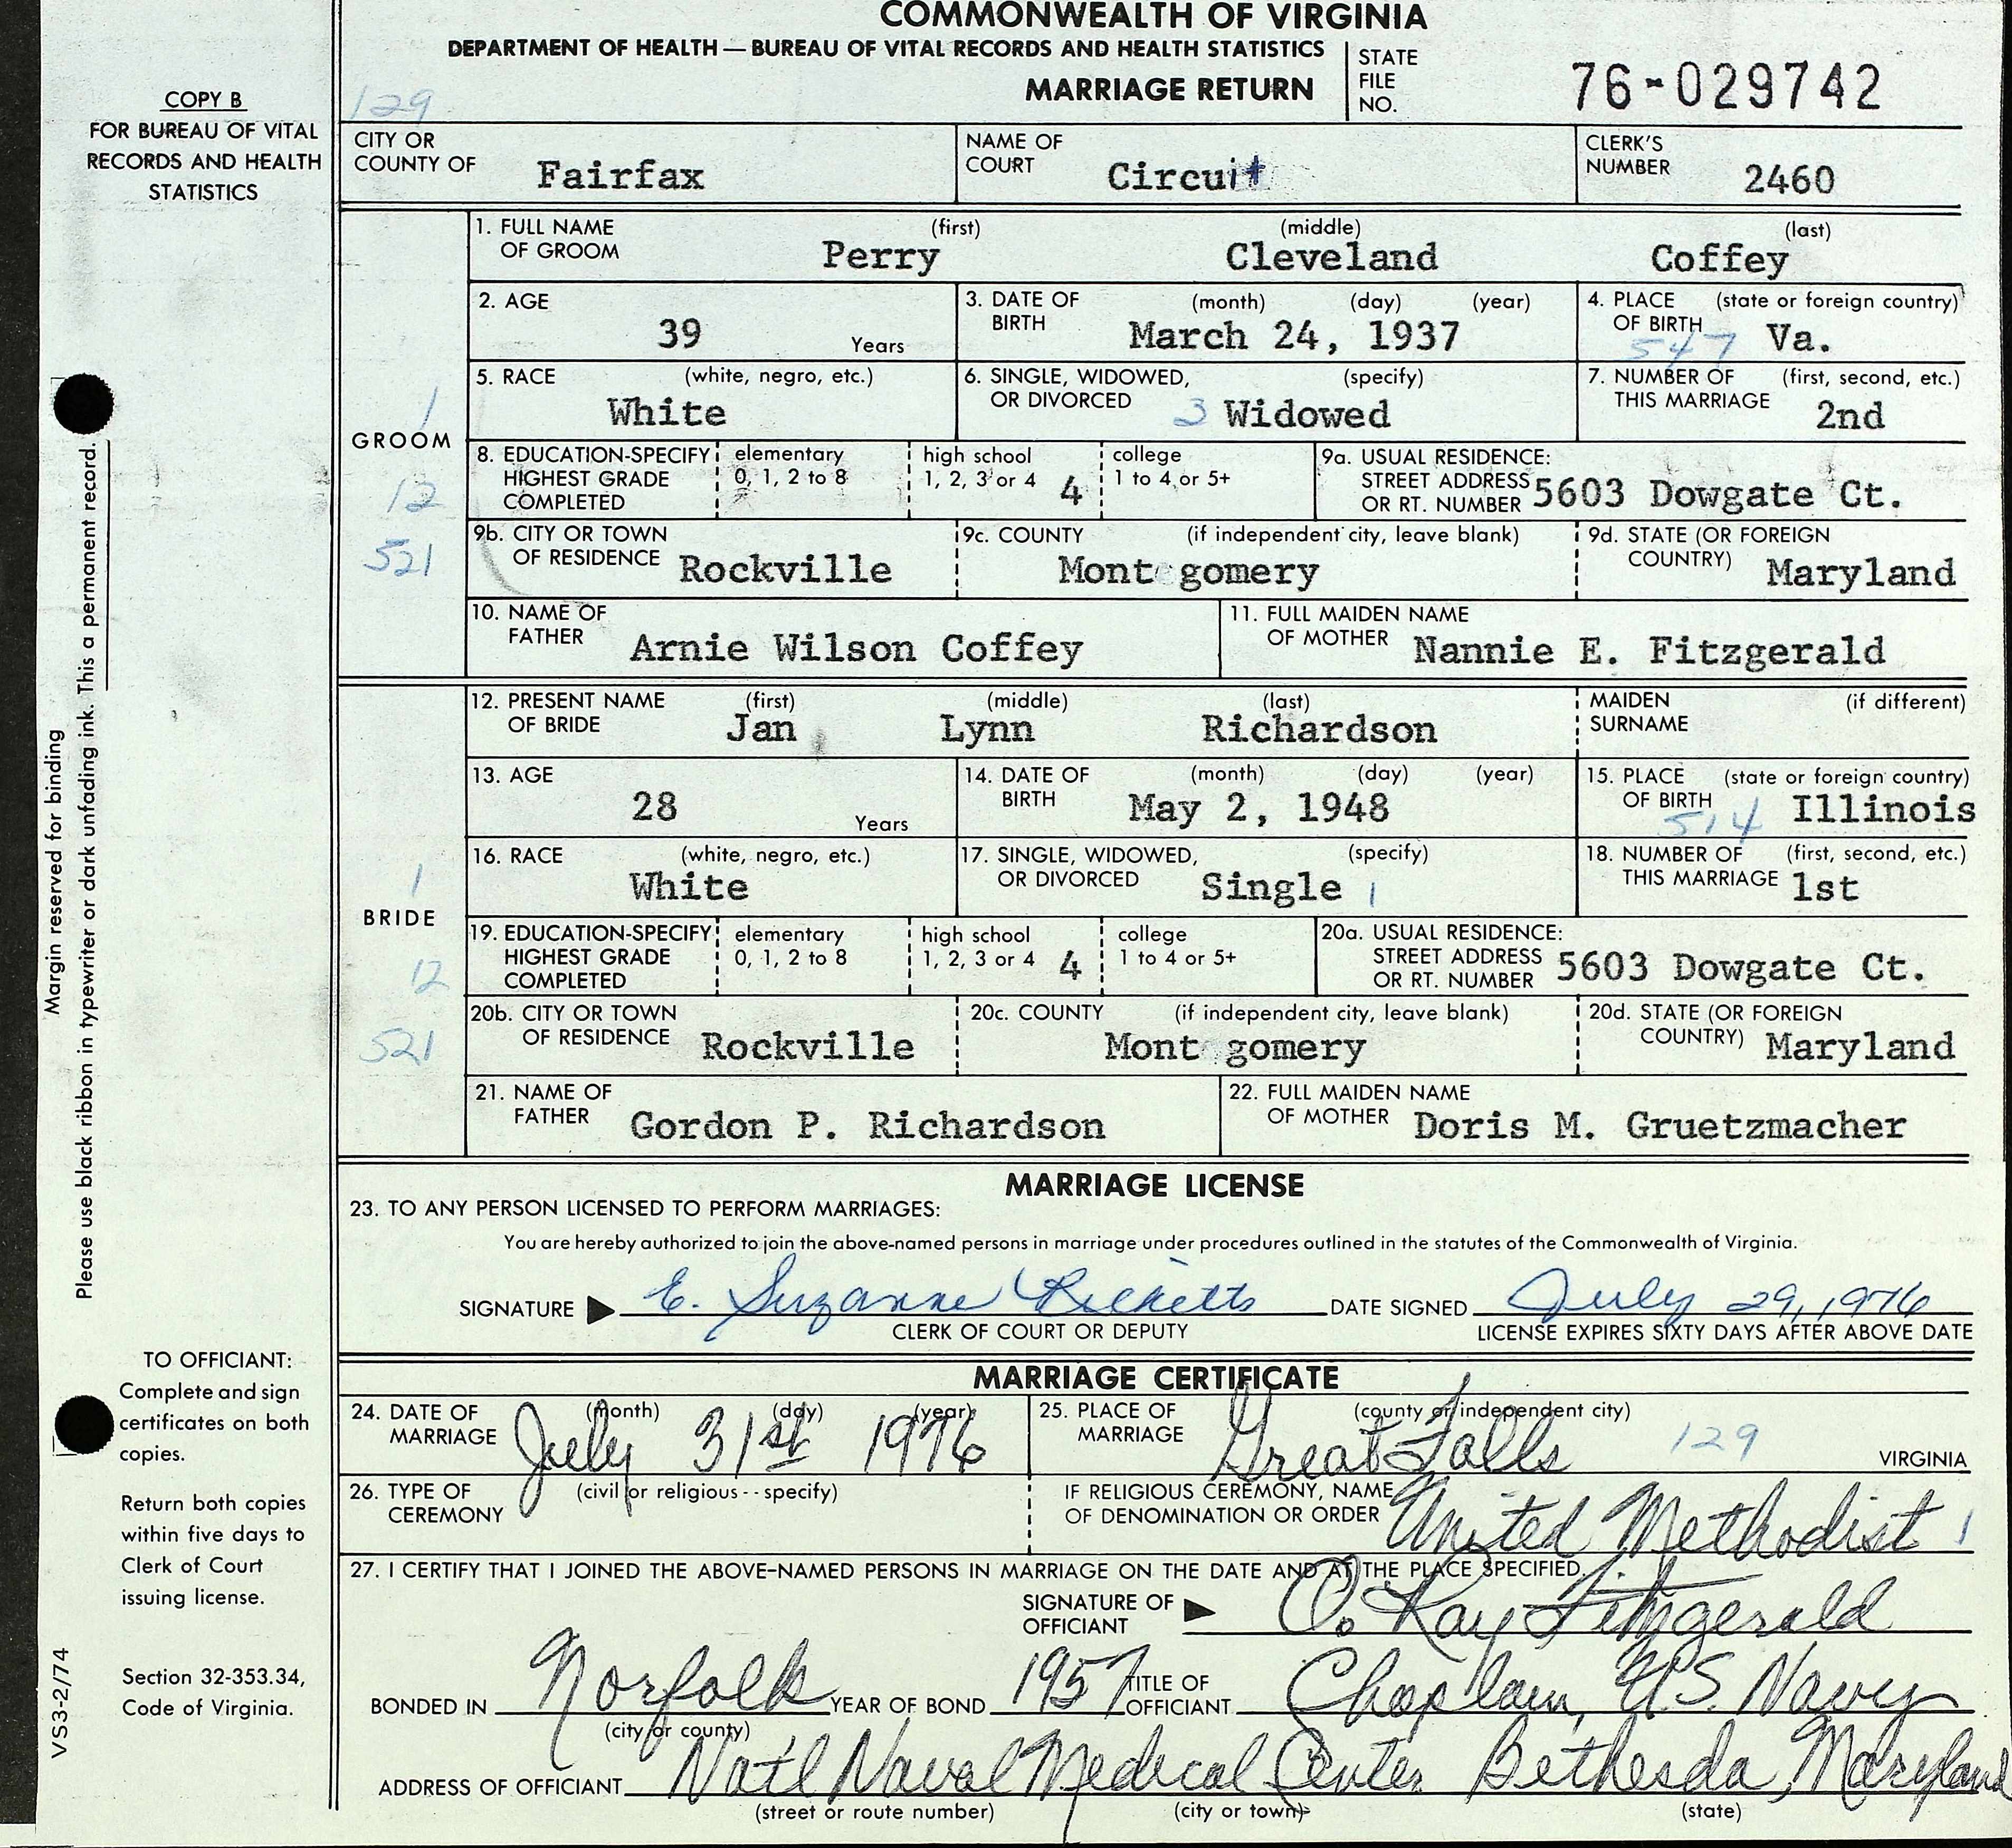 COMMONWEALTH OF VIRGINIA
DEPARTMENT OF HEALTH — BUREAU OF VITAL RECORDS AND HEALTH STATISTICS
MARRIAGE RETURN
STATE FILE NO. 76-029742
COPY B
FOR BUREAU OF VITAL
RECORDS AND HEALTH
STATISTICS
129
CITY OR COUNTY OF Fairfax NAME OF COURT Circuit CLERK'S NUMBER 2460
GROOM
1
12
521
1. FULL NAME OF GROOM (first) Perry (middle) Cleveland (last) Coffey
2. AGE 39 Years 3. DATE OF BIRTH (month) (day) (year) March 24, 1937 4. PLACE OF BIRTH (state or foreign country) 547 Va.
5. RACE (white, negro, etc.) White 6. SINGLE, WIDOWED, OR DIVORCED (specify) 3 Widowed 7. NUMBER OF THIS MARRIAGE (first, second, etc.) 2nd
8. EDUCATION-SPECIFY HIGHEST GRADE COMPLETED elementary 0, 1, 2 to 8 high school 1, 2, 3 or 4 4 college 1 to 4 or 5+ 9a. USUAL RESIDENCE: STREET ADDRESS OR RT. NUMBER 5603 Dowgate Ct.
9b. CITY OR TOWN OF RESIDENCE Rockville 9c. COUNTY (if independent city, leave blank) Mont gomery 9d. STATE (OR FOREIGN COUNTRY) Maryland
10. NAME OF FATHER Arnie Wilson Coffey 11. FULL MAIDEN NAME OF MOTHER Nannie E. Fitzgerald
BRIDE
1
12
521
12. PRESENT NAME OF BRIDE (first) Jan (middle) Lynn (last) Richardson MAIDEN SURNAME (if different)
13. AGE 28 Years 14. DATE OF BIRTH (month) (day) (year) May 2, 1948 15. PLACE OF BIRTH (state or foreign country) 514 Illinois
16. RACE (white, negro, etc.) White 17. SINGLE, WIDOWED, OR DIVORCED (specify) Single 1 18. NUMBER OF THIS MARRIAGE (first, second, etc.) 1st
19. EDUCATION-SPECIFY HIGHEST GRADE COMPLETED elementary 0, 1, 2 to 8 high school 1, 2, 3 or 4 4 college 1 to 4 or 5+ 20a. USUAL RESIDENCE: STREET ADDRESS OR RT. NUMBER 5603 Dowgate Ct.
20b. CITY OR TOWN OF RESIDENCE Rockville 20c. COUNTY (if independent city, leave blank) Mont gomery 20d. STATE (OR FOREIGN COUNTRY) Maryland
21. NAME OF FATHER Gordon P. Richardson 22. FULL MAIDEN NAME OF MOTHER Doris M. Gruetzmacher
MARRIAGE LICENSE
23. TO ANY PERSON LICENSED TO PERFORM MARRIAGES:
You are hereby authorized to join the above-named persons in marriage under procedures outlined in the statutes of the Commonwealth of Virginia.
SIGNATURE E. Suzanne Ricketts DATE SIGNED July 29, 1976
CLERK OF COURT OR DEPUTY LICENSE EXPIRES SIXTY DAYS AFTER ABOVE DATE
MARRIAGE CERTIFICATE
24. DATE OF MARRIAGE (month) (day) (year) July 31st 1976 25. PLACE OF MARRIAGE (county or independent city) Great Falls 129 VIRGINIA
26. TYPE OF CEREMONY (civil or religious - - specify) IF RELIGIOUS CEREMONY, NAME OF DENOMINATION OR ORDER United Methodist 1
27. I CERTIFY THAT I JOINED THE ABOVE-NAMED PERSONS IN MARRIAGE ON THE DATE AND AT THE PLACE SPECIFIED.
SIGNATURE OF OFFICIANT O. Ray Fitzgerald
BONDED IN Norfolk YEAR OF BOND 1957 TITLE OF OFFICIANT Chaplain, U.S. Navy
(city or county)
ADDRESS OF OFFICIANT Nat'l Naval Medical Center Bethesda, Maryland
(street or route number) (city or town) (state)
Margin reserved for binding
Please use black ribbon in typewriter or dark unfading ink. This a permanent record.
TO OFFICIANT:
Complete and sign
certificates on both
copies.
Return both copies
within five days to
Clerk of Court
issuing license.
Section 32-353.34,
Code of Virginia.
VS3-2/74